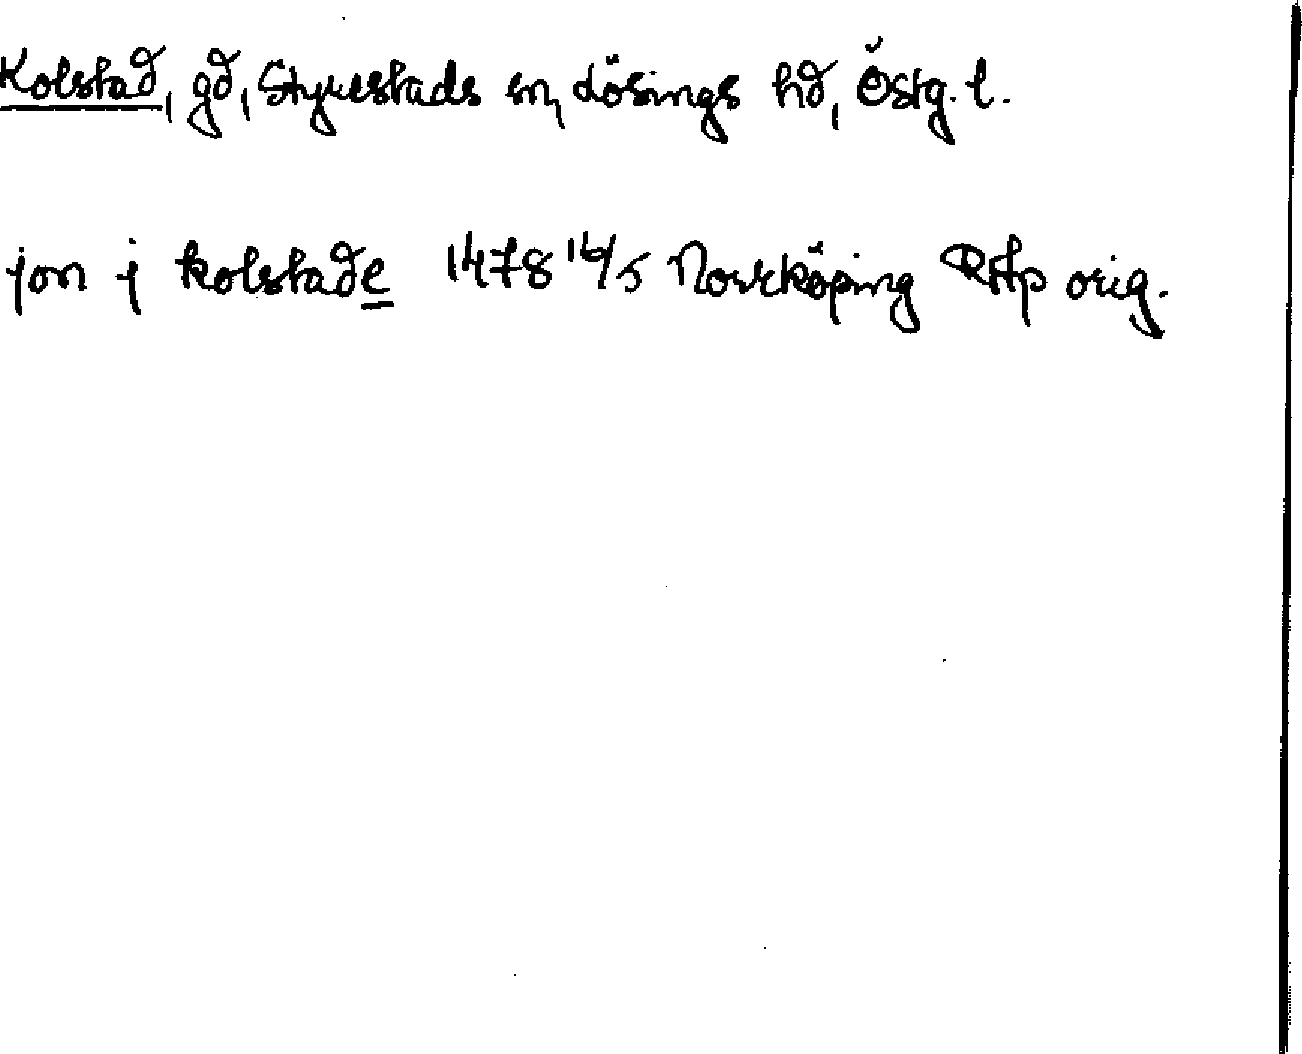 Kolstad, gd, Styrestads sn, Lösings hd, Östg. l.
jon j kolstade 1478 16/5 Norrköping RAp orig.